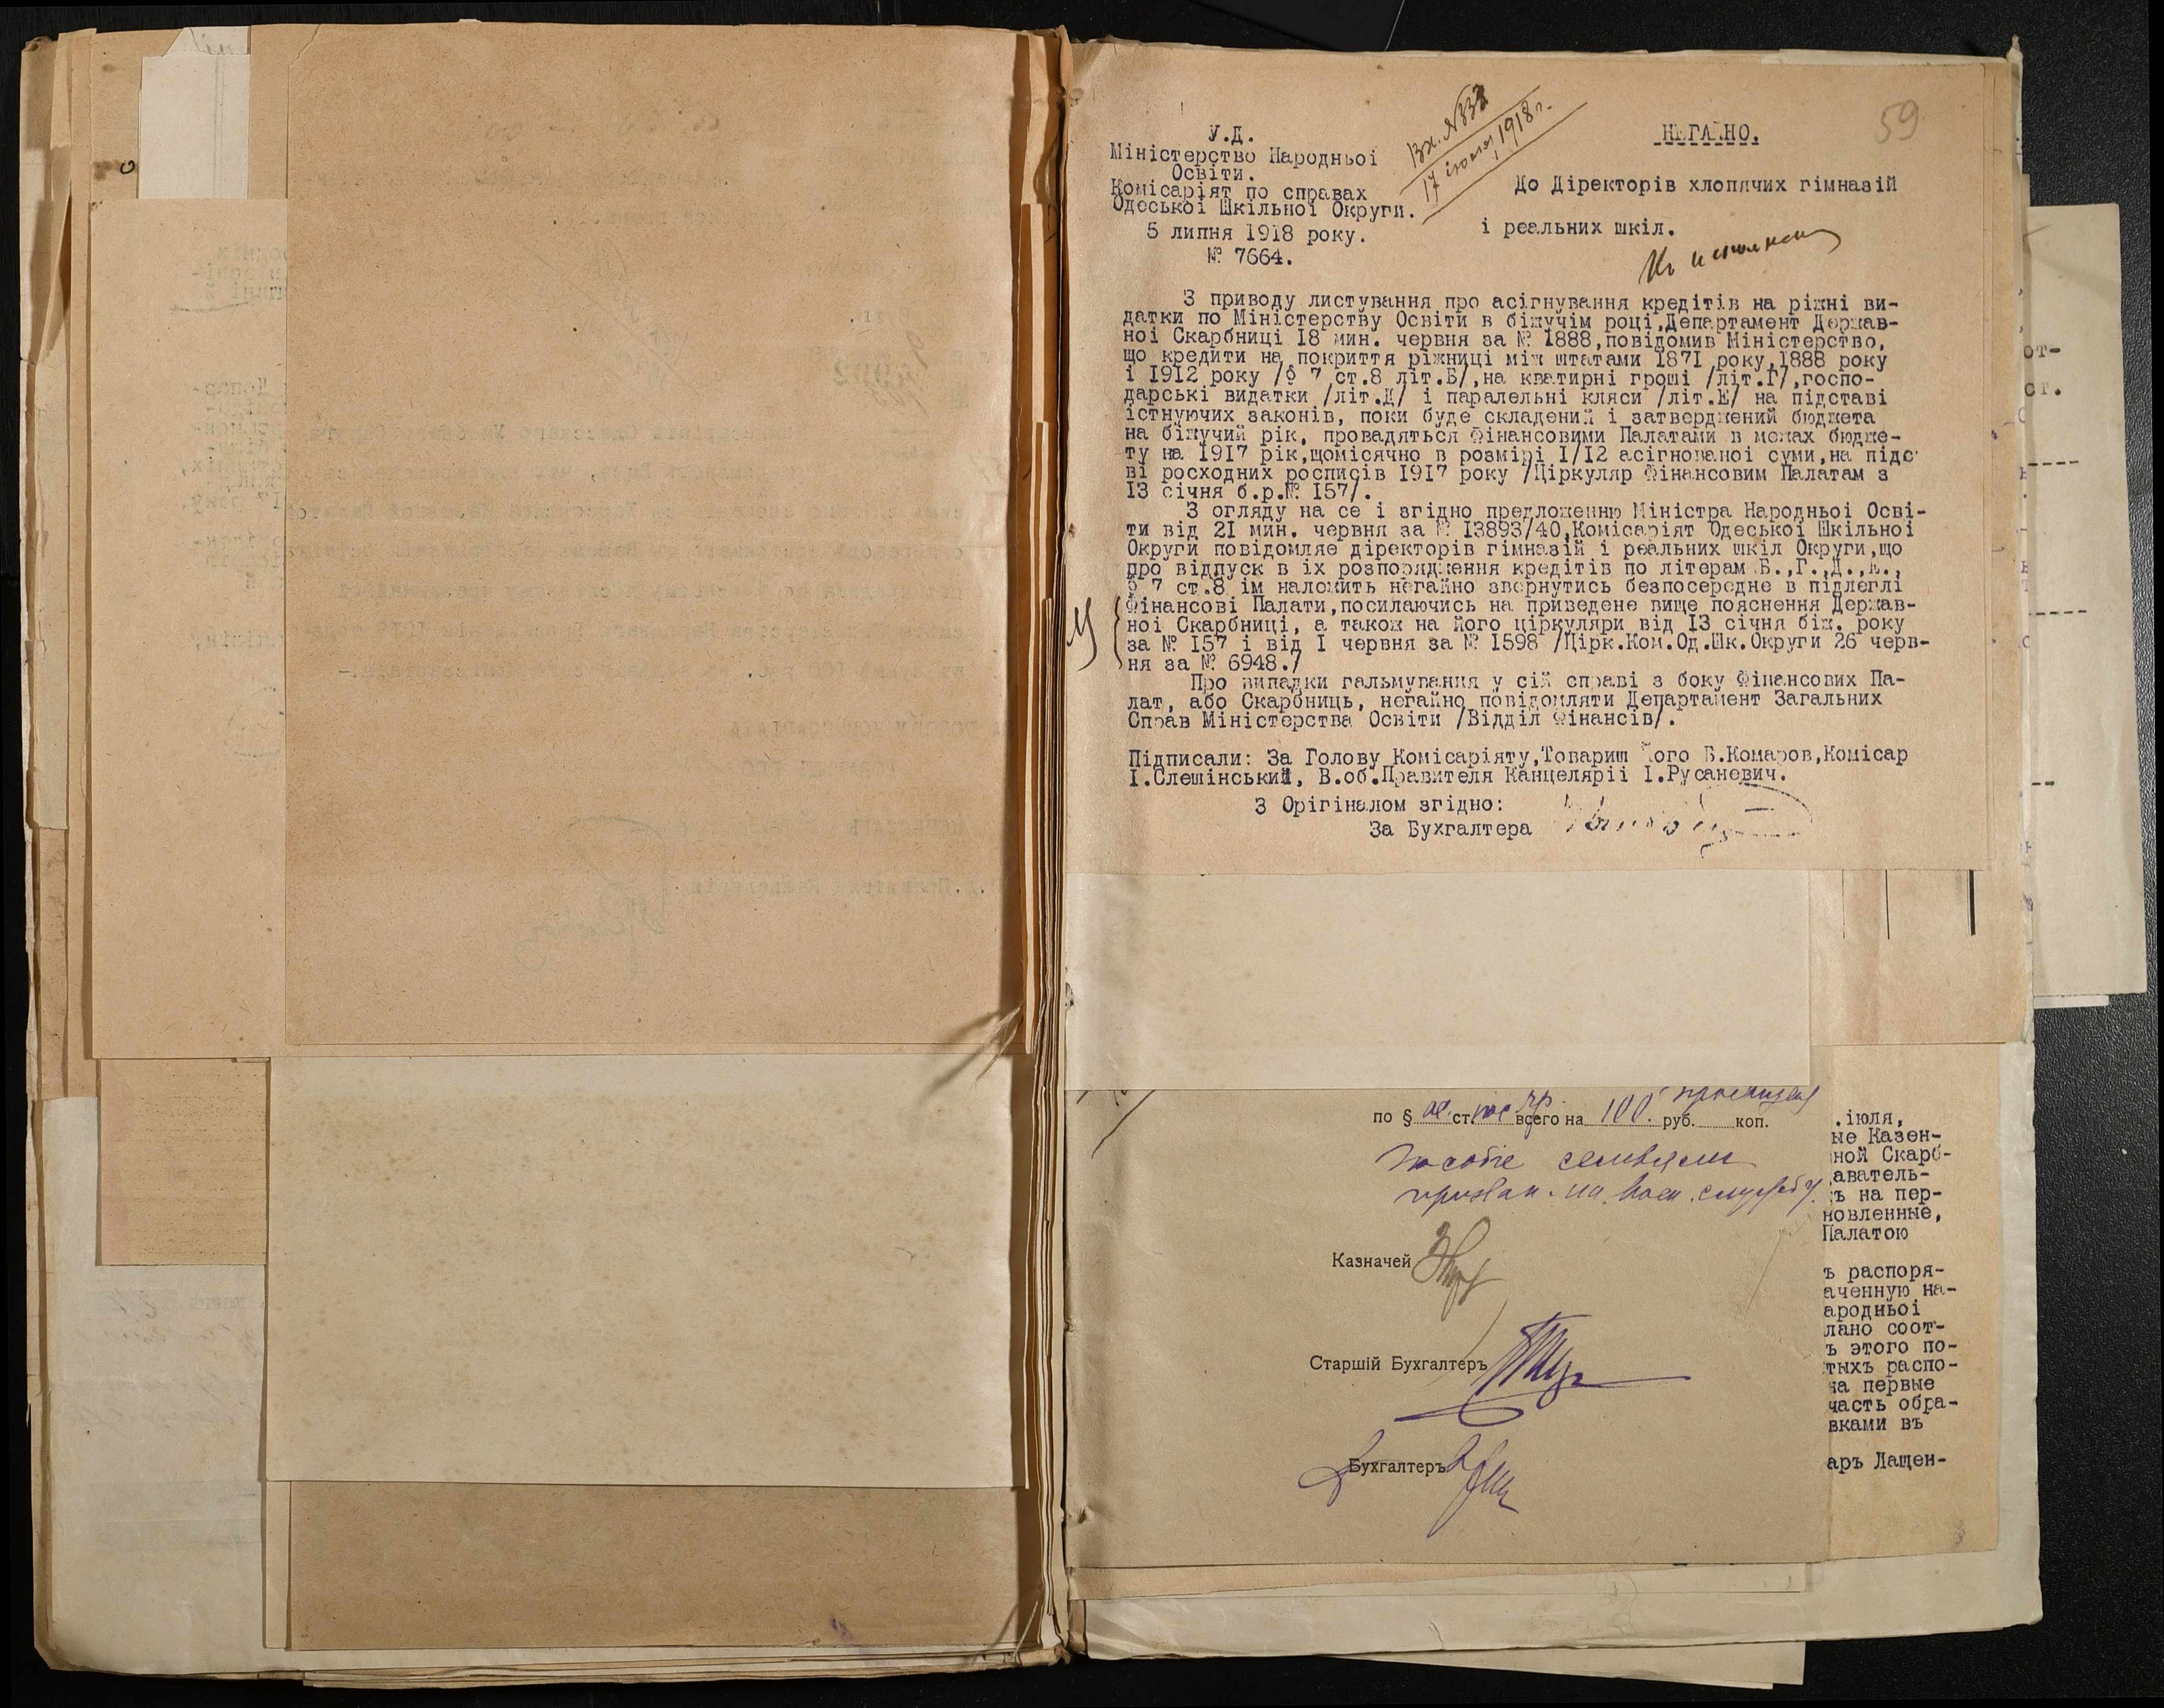 59
У.Д.
Міністерство Народньоі
Освіти.
Комісаріят по справах
Одеськоі Шкільноі Округи.
5 липня 1918 року.
№ 7664.
Вх. №
17 1918 г.
НЕГАЙНО.
До Діректорів хлопячих гімназій
і реальних шкіл.
Къ
З приводу листування про асігнування кредітів на ріжні ви-
датки по Міністерству Освіти в біжучім році,Департамент Держав-
ноі Скарбниці 18 мин. червня за № 1888,повідомив Міністерство,
що кредити на покриття ріжниці між штатами 1871 року,1888 року
і 1912 року /§ 7 ст.8 літ.Б/,на кватирні гроші /літ.Г/,госпо-
дарські видатки /літ.Д/ і паралельні кляси /літ.Е/ на підставі
істнуючих законів, поки буде складений і затверджений бюджета
на біжучий рік, провадяться Фінансовими Палатами в межах бюдже-
ту на 1917 рік,щомісячно в розмірі 1/12 асігнованоі суми,на підс
ві росходних росписів 1917 року /Ціркуляр Фінансовим Палатам з
13 січня б.р.№ 157/.
З огляду на се і згідно предложенню Міністра Народньоі Осві-
ти від 21 мин. червня за № 13893/40,Комісаріят Одеськоі Шкільноі
Округи повідомляе діректорів гімназій і реальних шкіл Округи,що
про відпуск в іх розпорядження кредітів по літерам Б.,Г.,Д.,Е.,
§ 7 ст.8 ім належить негайно звернутись безпосередне в підлеглі
Фінансові Палати,посилаючись на приведене вище пояснення Держав-
ноі Скарбниці, а також на його ціркуляри від 13 січня біж. року
за № 157 і від 1 червня за № 1598 /Цірк.Ком.Од.Шк.Округи 26 черв-
ня за № 6948./
Про випадки гальмування у сій справі з боку Фінансових Па-
лат, або Скарбниць, негайно повідомляти Департамент Загальних
Справ Міністерства Освіти /Відділ Фінансів/.
Підписали: За Голову Комісаріяту,Товариш Його Б.Комаров,Комісар
І.Слешінський, В.об.Правителя Канцеляріі І.Русаневич.
З Орігіналом згідно:
За Бухгалтера
по § ст. всего на 100 руб. коп.
пособіе семьямъ
призван. на воен. службу
Казначей
Старшій Бухгалтеръ
Бухгалтеръ
от-
ст.
.іюля,
ые Казен-
ной Скарб-
аватель-
ъ на пер-
новленные,
Палатою
ъ распоря-
аченную на-
ародньоі
лано соот-
ъ этого по-
тыхъ распо-
на первые
часть обра-
вками въ
аръ Лащен-